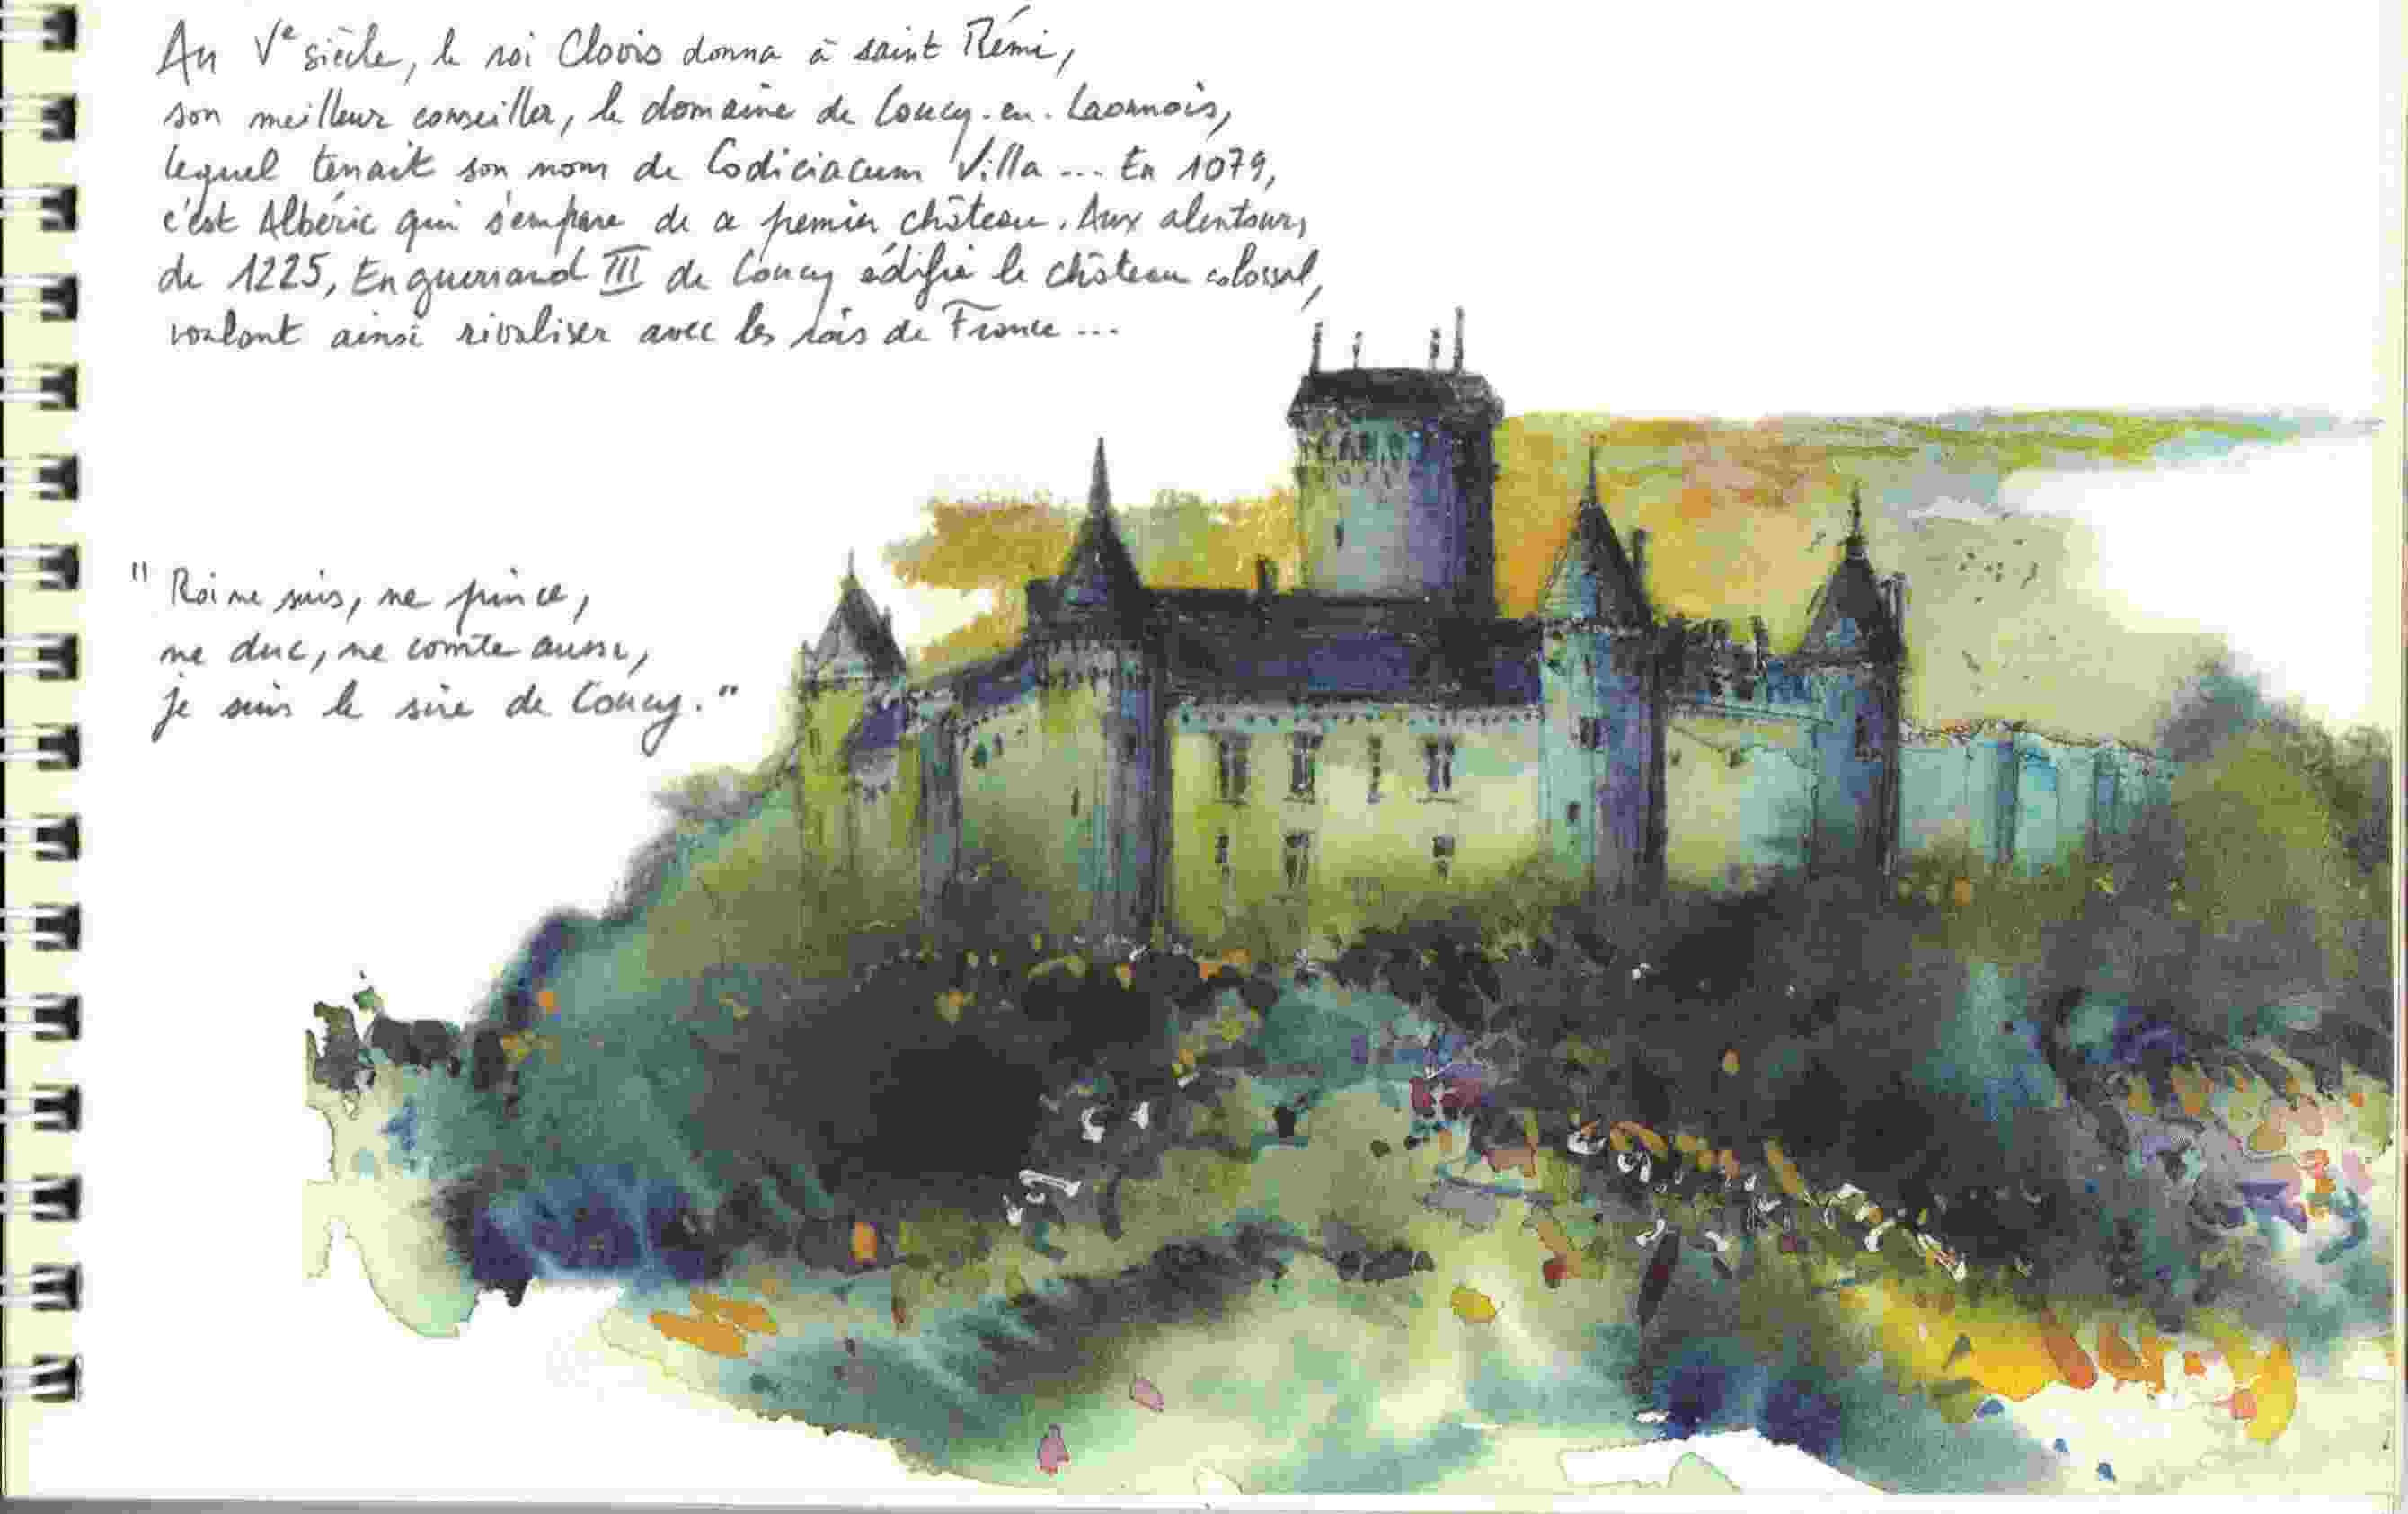 Au Ve siècle, le roi Clovis donna à saint Rémi,
son meilleur conseiller, le domaine de Coucy-en-Laonnois,
lequel tenait son nom de Codiciacum Villa... En 1079,
c'est Albéric qui s'empare de ce premier château. Aux alentours
de 1225, Enguerrand III de Coucy édifie le château colossal,
voulant ainsi rivaliser avec les rois de France...
"Roi ne suis, ne prince,
ne duc, ne comte aussi,
je suis le sire de Coucy."